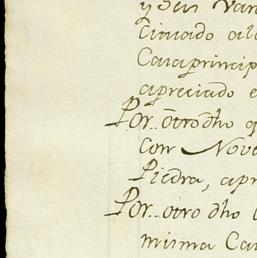 y Seis Var
Cituado al
Casa princip
apreciado e
Por.. ôtro dho q
Con Nove
Piedra, apr
Por.. otro dho
misma Ca